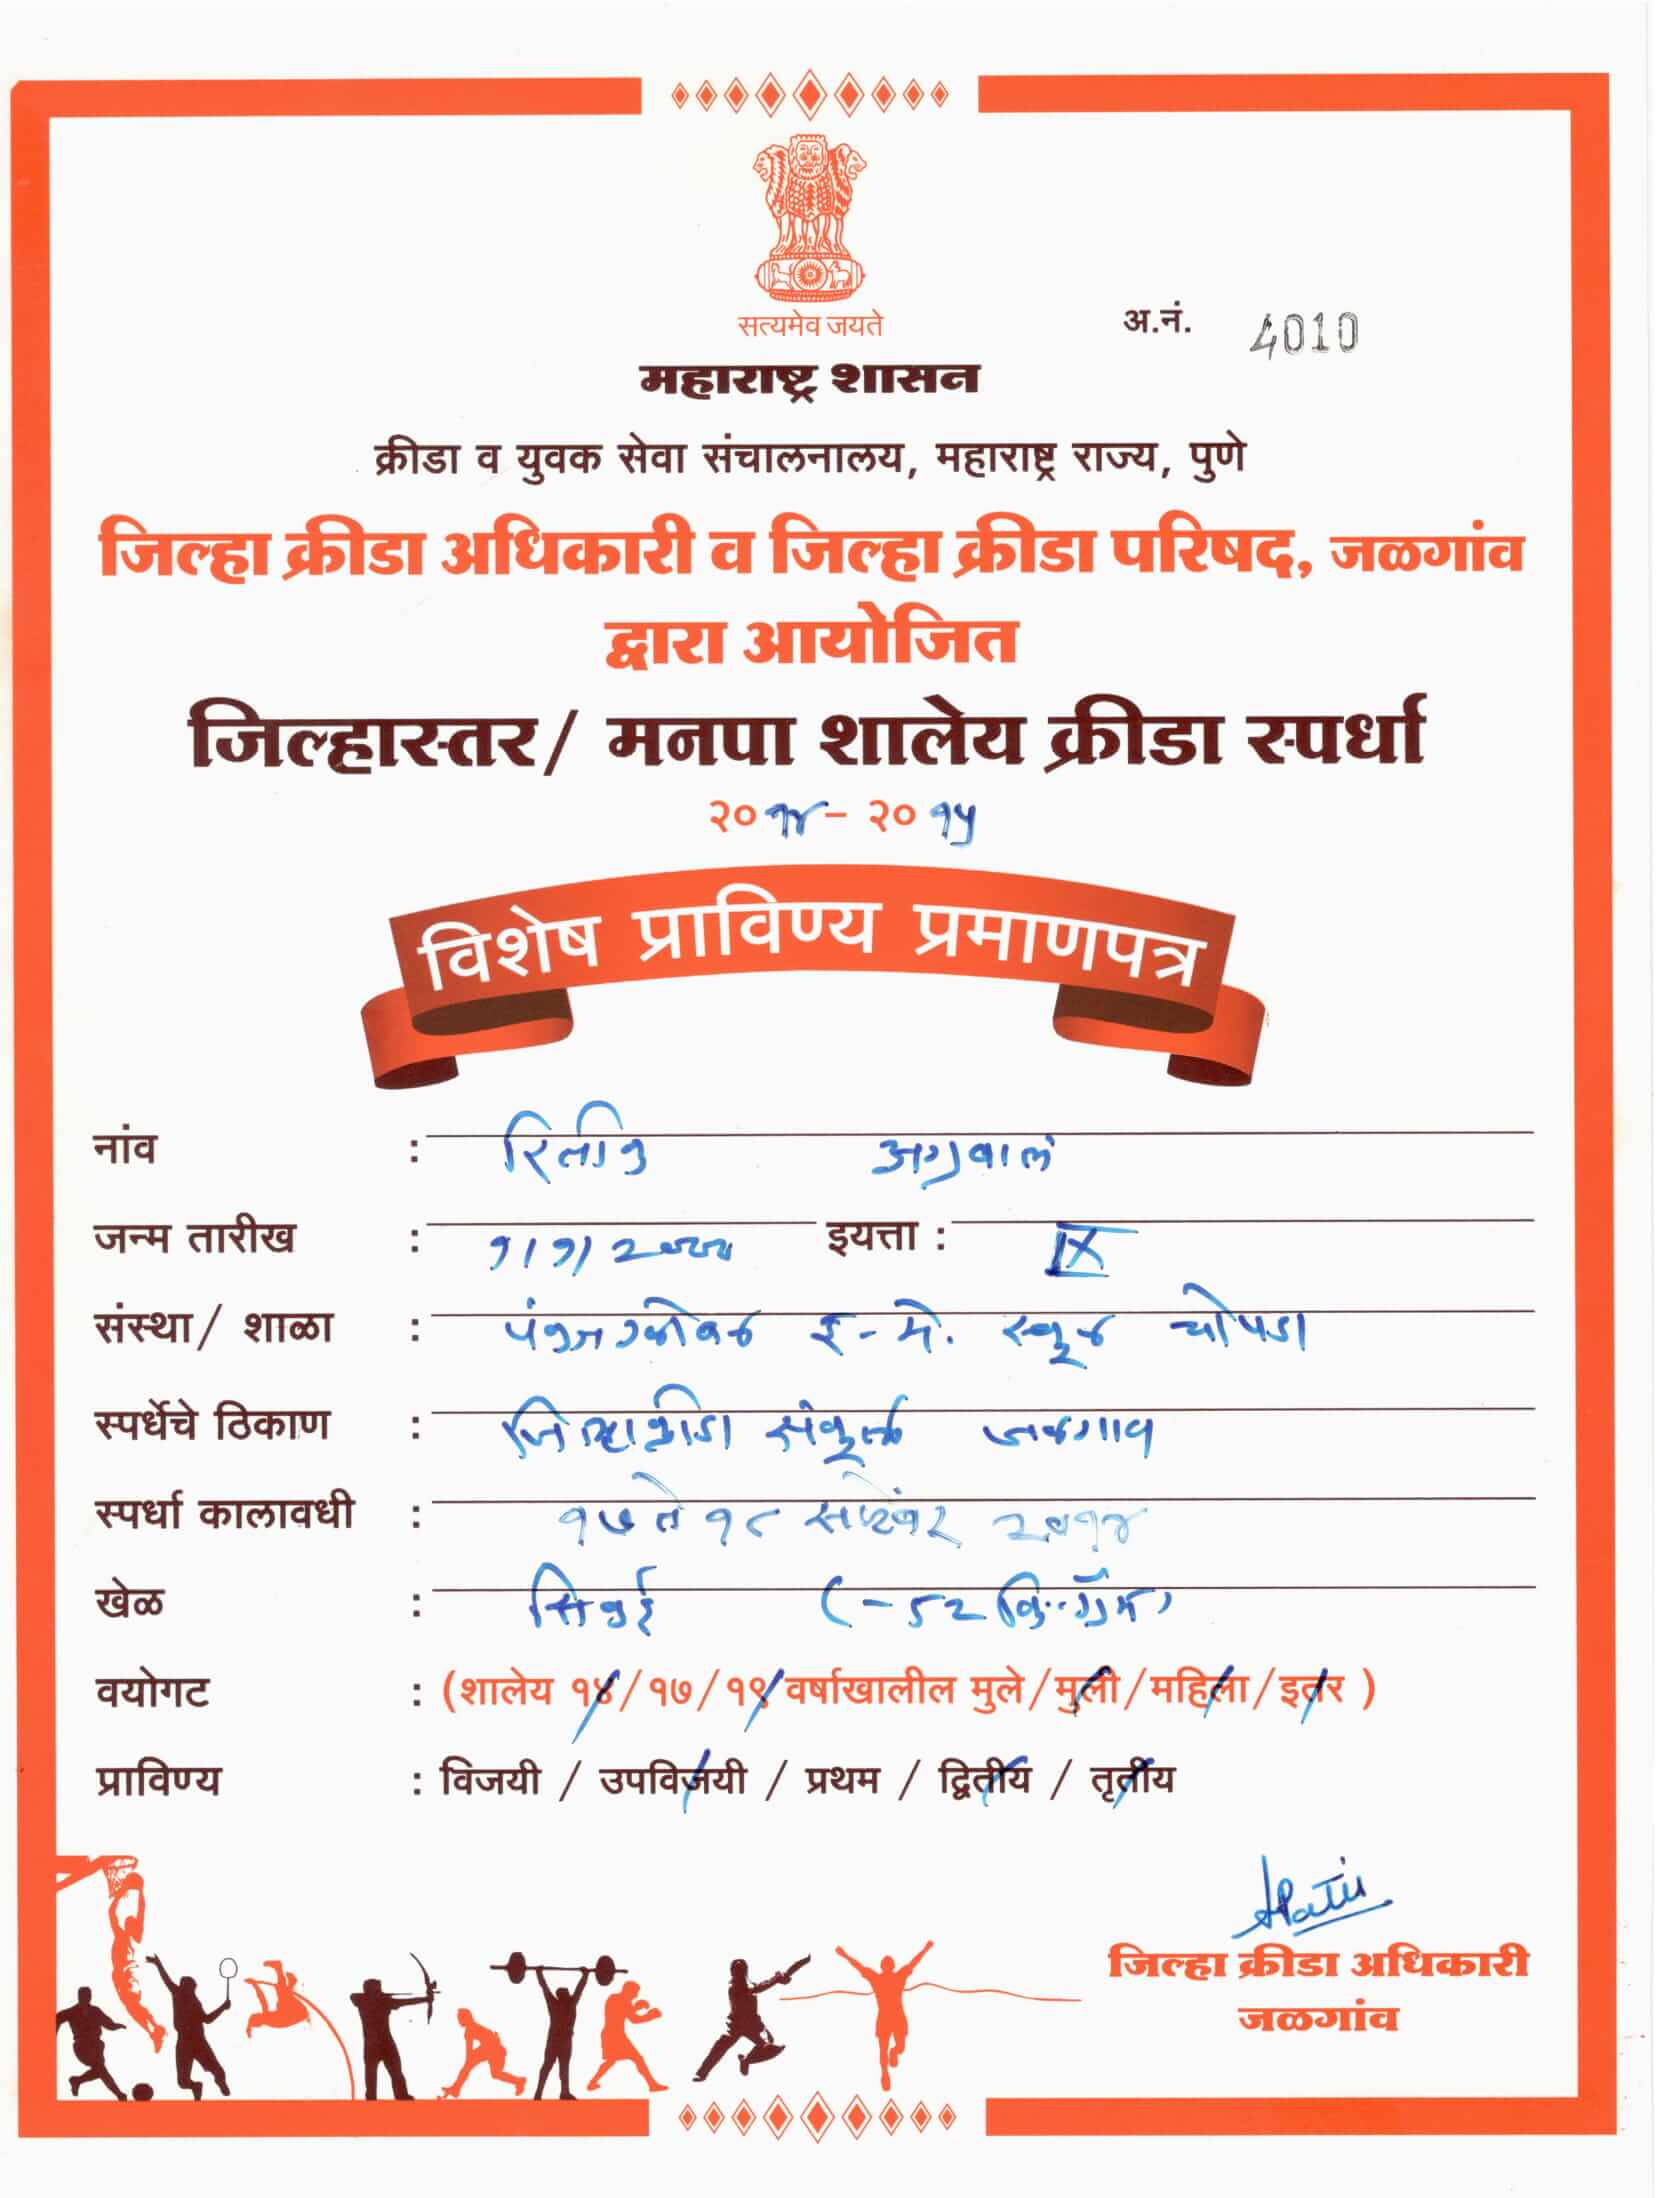 सत्यमेव जयते
अ.नं. 4010
महाराष्ट्र शासन
क्रीडा व युवक सेवा संचालनालय, महाराष्ट्र राज्य, पुणे
जिल्हा क्रीडा अधिकारी व जिल्हा क्रीडा परिषद, जळगांव
द्वारा आयोजित
जिल्हास्तर/ मनपा शालेय क्रीडा स्पर्धा
२०१४ – २०१५
विशेष प्राविण्य प्रमाणपत्र
नांव : अग्रवाल
जन्म तारीख : १/१/२००० इयत्ता : IX
संस्था/ शाळा : पंकज ग्लोबल इ-मे. स्कूल चोपडा
स्पर्धेचे ठिकाण : जिल्हा क्रीडा संकुल जळगाव
स्पर्धा कालावधी : १७ ते १८ सप्टेंबर २०१४
खेळ : सिकई (-५२ कि.ग्रॅम)
वयोगट : (शालेय १४/१७/१९ वर्षाखालील मुले/मुली/महिला/इतर )
प्राविण्य : विजयी / उपविजयी / प्रथम / द्वितीय / तृतीय
जिल्हा क्रीडा अधिकारी
जळगांव